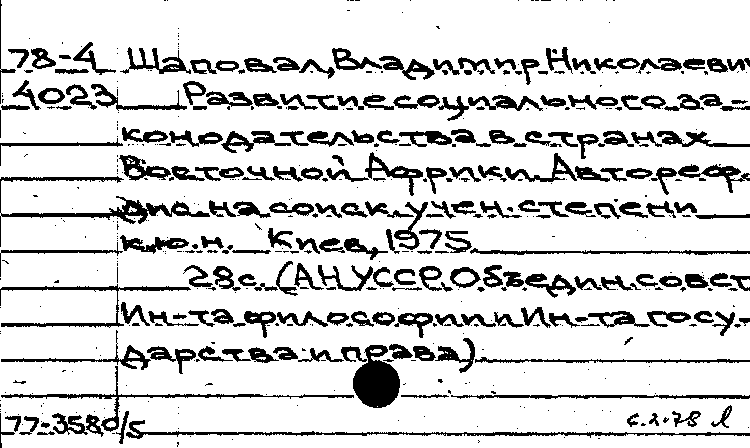 78-4 Шаповал, Владимир Николаевич
4023 Развитие социального за-
конодательства в странах
Восточной Африки. Автореф.
дис. на соиск. учен. степени
к.ю.н. Киев, 1975.
28с. (АН УССР. Объедин. совет
Ин-та философии и Ин-та госу-
дарства и права).
77-3580/5